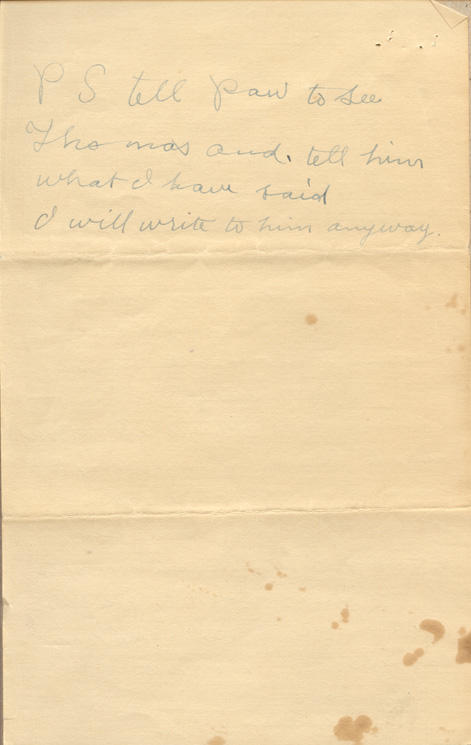 P S tell paw to see
Thomas and. tell him
what I have said
I will write to him anyway.